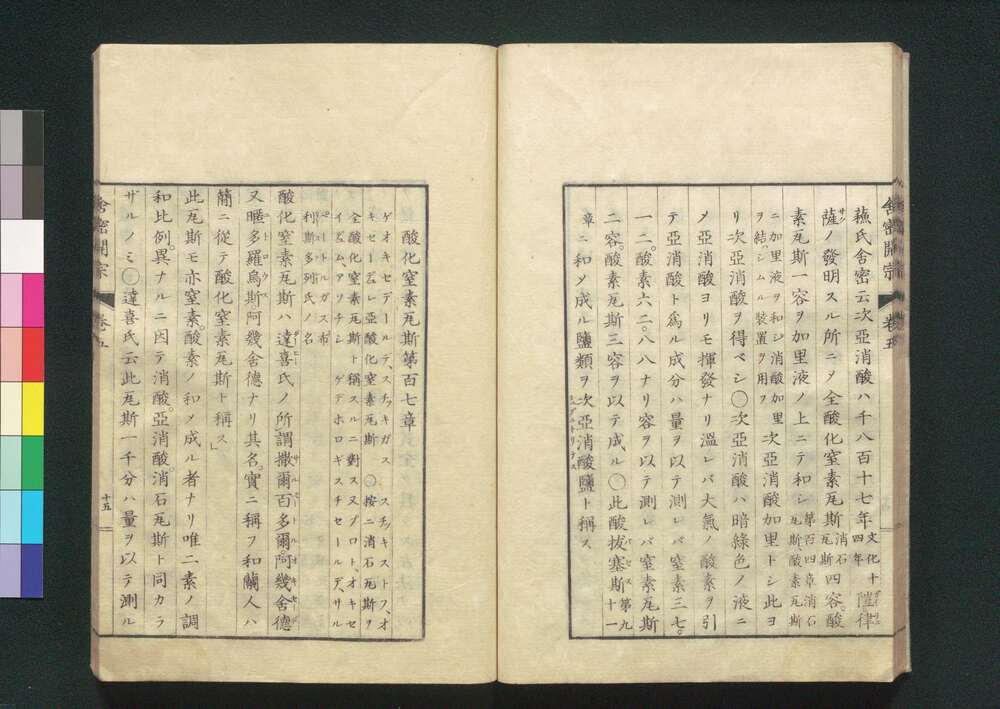 舎密開宗 卷五
蘓氏舎密云次亞消酸ハ千八百十七年文化十四年陞律
薩ノ發明スル所ニ〆全酸化窒素瓦斯消石瓦斯四容。酸
素瓦斯一容ヲ加里液ノ上ニテ和シ第百四章消石瓦斯、酸素瓦斯
ニ加里液ヲ和シ消酸加里ヲ結ハシムル装置ヲ用フ次亞消酸加里トシ此ヨ
リ次亞消酸ヲ得ベシ〇次亞消酸ハ暗綠色ノ液ニ
〆亞消酸ヨリモ揮發ナリ溫レバ大氣ノ酸素ヲ引
テ亞消酸ト爲ル成分ハ量ヲ以テ測レバ窒素三七。
一二。酸素六二。八八ナリ容ヲ以テ測レバ窒素瓦斯
二容。酸素瓦斯三容ヲ以テ成ル〇此酸抜塞斯第九十一
章ニ和〆成ル鹽類ヲ次亞消酸鹽ト稱ス
酸化窒素瓦斯第百七章
ゲオキセデールテ、スチッキガス スチッキストフ、オ
キセーデュム、レ亞酸化窒素瓦斯 〇按ニ消石瓦斯ヲ
全酸化窒素瓦斯ト稱スルニ對ス又プロト、オキセ
イデュム、アソチシ ゲデホロギスチセールデ、サル
ペートルガス布利斯多列氏ノ名
酸化窒素瓦斯ハ達喜氏ノ所謂撒爾百多爾阿幾舎德
又曖多羅烏斯阿幾舎德ナリ其名。實ニ稱フ和蘭人ハ
蕳ニ從テ酸化窒素瓦斯ト稱ス」
此瓦斯モ亦窒素。酸素ノ和〆成ル者ナリ唯二素ノ調
和比例。異ナルニ因テ消酸。亞消酸。消石瓦斯ト同カラ
ザルノミ〇達喜氏云此瓦斯一千分ハ量ヲ以テ測ル
舎密開宗 卷五 十五